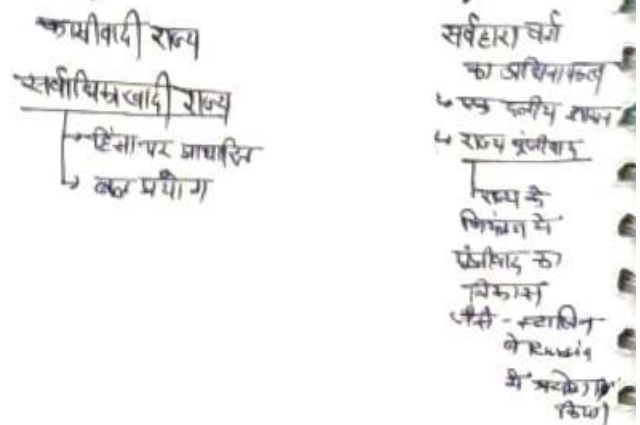 फासीवादी राज्य
सर्वाधिकारवादी राज्य
हिंसा पर आधारित
बल प्रयोग
सर्वहारा वर्ग
का अधिनायकत्व
एक दलीय शासन
राज्य पूंजीवाद
राज्य के
नियंत्रण में
पूंजीवाद का
विकास
जैसे - स्टालिन
ने Russia
में प्रयोग
किया।